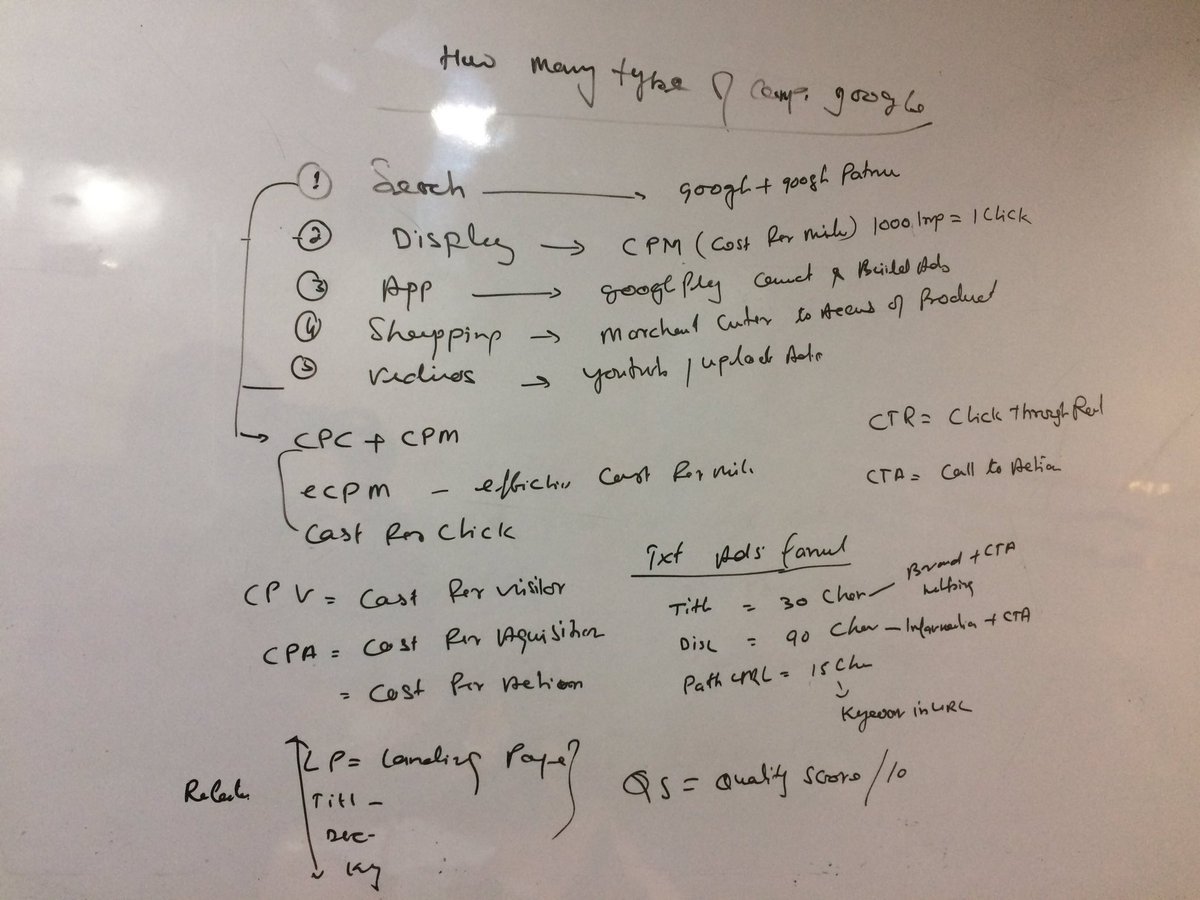 How many type of camp. google
① Search → google + google Patnu
② Display → CPM (Cost Per mile) 1000 Imp = 1 Click
③ App → google Play & Build Ads
④ Shopping → Marchent to of Product
⑤ → / upload Ads
→ CPC + CPM
CTR = Click through
eCPM - Cost Per mile
CTA = Call to Action
Cost Per Click
Txt Ads
CPV = Cost Per visitor
Title = 30 Char - Brand + CTA
CPA = Cost Per Aquisition
Disc = 90 Char - Information + CTA
= Cost Per Action
Path URL = 15 Cha
↓
in URL
LP = Landing Page
QS = Quality Score / 10
Titl -
Dec -
Key